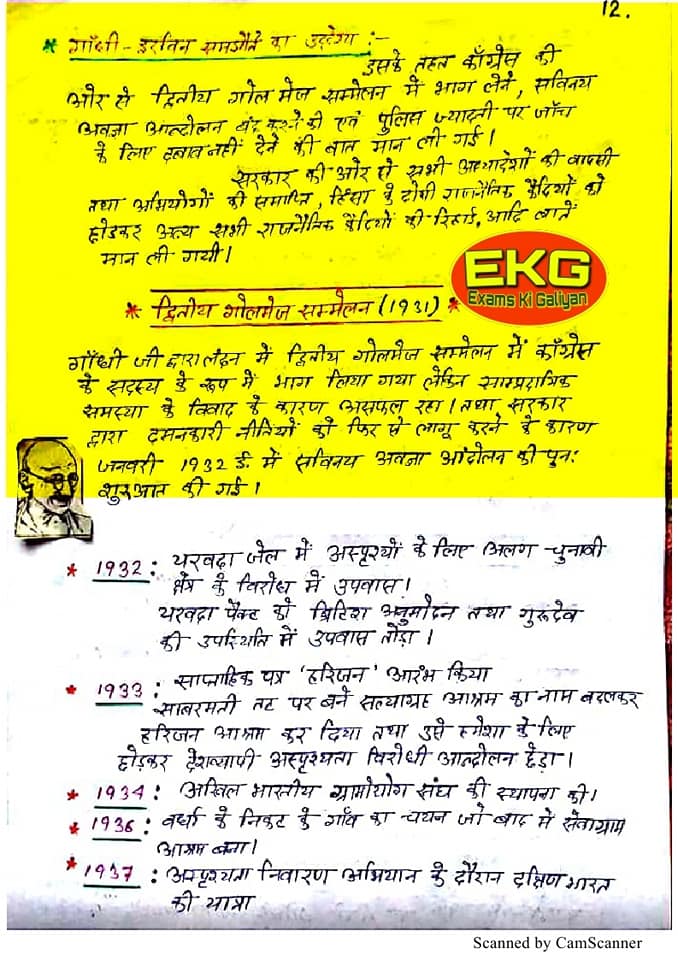 12.
* गाँधी-इरविन समझौते का उद्देश्य :-
इसके तहत काँग्रेस की
ओर से द्वितीय गोल मेज सम्मेलन में भाग लेने, सविनय
अवज्ञा आन्दोलन बंद करने की एवं पुलिस ज्यादती पर जाँच
के लिए दबाव नहीं देने की बात मान ली गई।
सरकार की ओर से सभी अध्यादेशों की वापसी
तथा अभियोगों की समाप्ति, हिंसा के दोषी राजनैतिक कैदियों को
छोडकर अन्य सभी राजनैतिक कैदियों की रिहाई, आदि बातें
मान ली गयी।
EKG
Exams Ki Galiyan
* द्वितीय गोलमेज सम्मेलन (1931) *
गाँधी जी द्वारा लंदन में द्वितीय गोलमेज सम्मेलन में काँग्रेस
के सदस्य के रूप में भाग लिया गया लेकिन साम्प्रदायिक
समस्या के विवाद के कारण असफल रहा। तथा सरकार
द्वारा दमनकारी नीतियों को फिर से लागू करने के कारण
जनवरी 1932 ई. में सविनय अवज्ञा आंदोलन की पुनः
शुरुआत की गई।
* 1932 : यरवदा जेल में अस्पृश्यों के लिए अलग चुनावी
क्षेत्र के विरोध में उपवास।
यरवदा पैक्ट को ब्रिटिश अनुमोदन तथा गुरूदेव
की उपस्थिति में उपवास तोड़ा।
* 1933 : साप्ताहिक पत्र 'हरिजन' आरंभ किया
साबरमती तट पर बने सत्याग्रह आश्रम का नाम बदलकर
हरिजन आश्रम कर दिया तथा उसे हमेशा के लिए
छोड़कर देशव्यापी अस्पृश्यता विरोधी आन्दोलन छेड़ा।
* 1934 : अखिल भारतीय ग्रामोयोग संघ की स्थापना की।
* 1936 : वर्धा के निकट के गाँव का चयन जो बाद में सेवाग्राम
आश्रम बना।
* 1937 : अस्पृश्यता निवारण अभियान के दौरान दक्षिण भारत
की यात्रा
Scanned by CamScanner